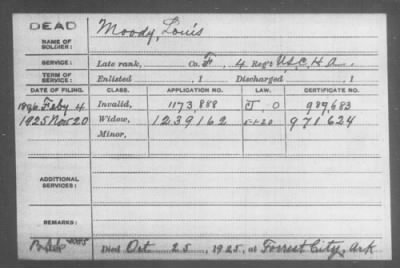 DEAD
NAME OF SOLDIER: Moody, Louis
SERVICE: Late rank, Co. F, 4 Reg't U.S.C.H.A.
TERM OF SERVICE: Enlisted , 1 Discharged , 1
DATE OF FILING. CLASS. APPLICATION NO. LAW. CERTIFICATE NO.
1896 Feby 4 Invalid, 1173,888 J O 989,683
1925 Nov 20 Widow, 1239162 5-1-20 971624
Minor,
ADDITIONAL SERVICES:
REMARKS:
Died Oct 25, 1925, at Forrest City, Ark